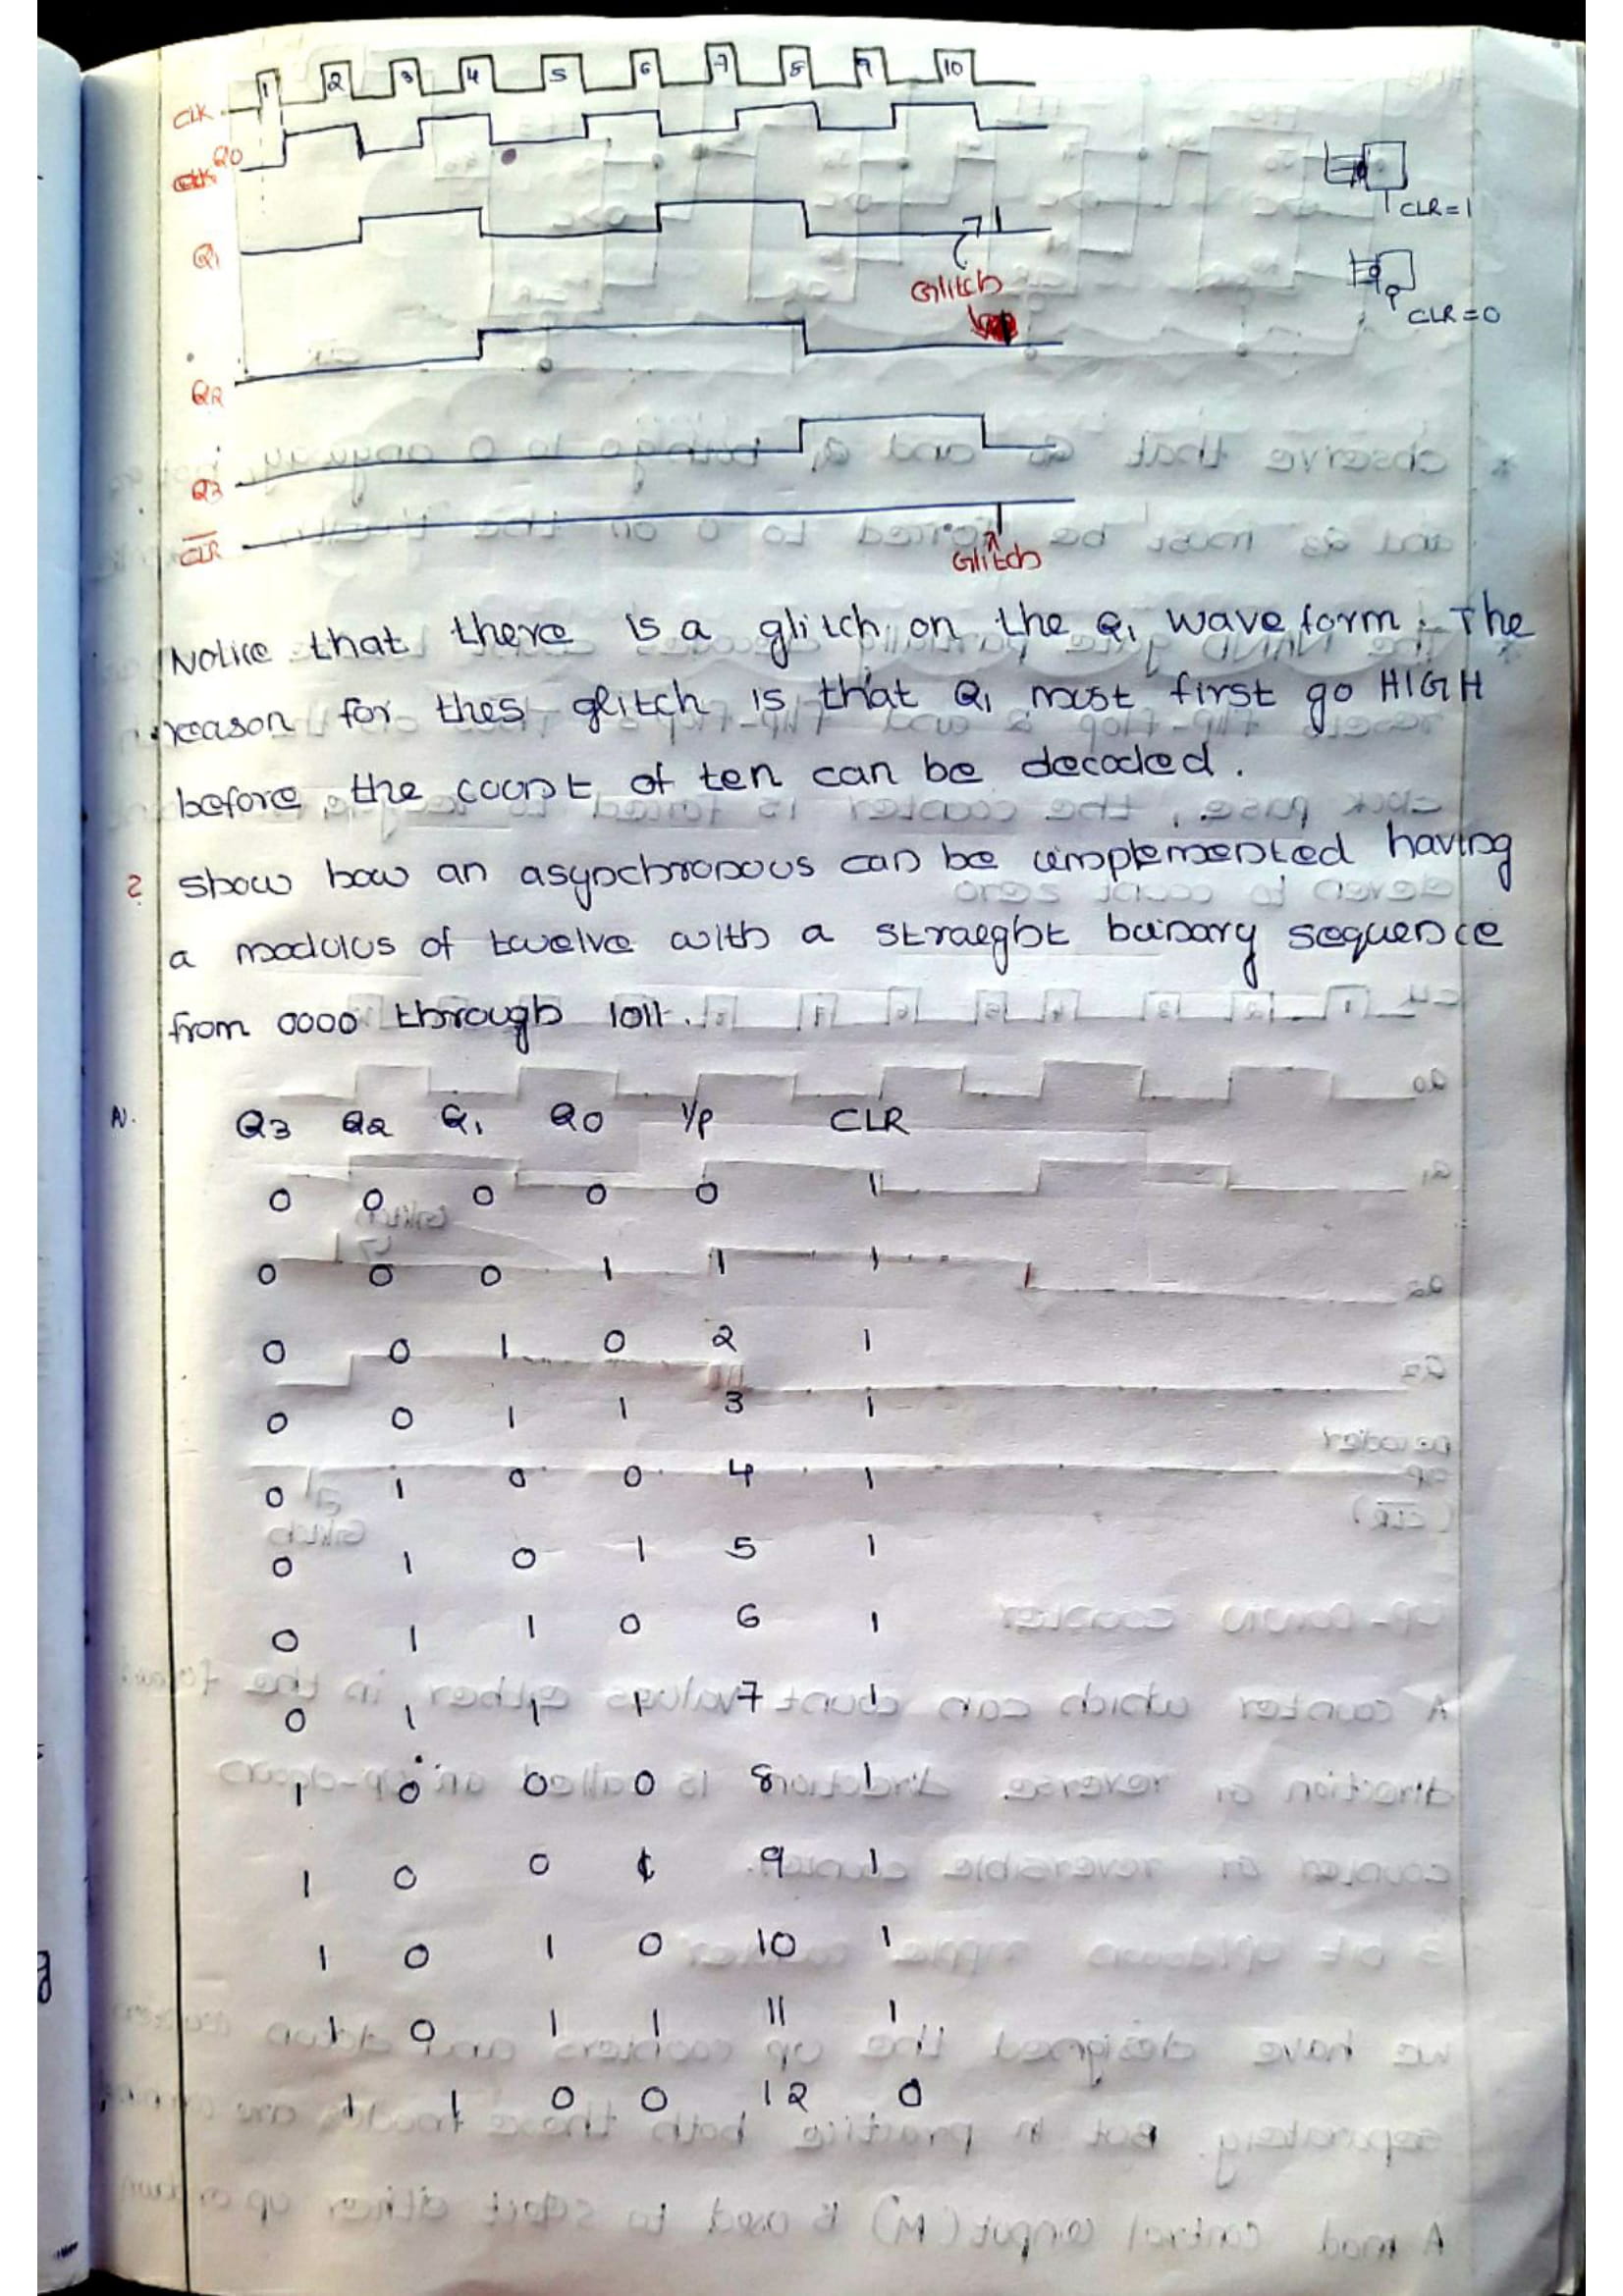 1 2 3 4 5 6 7 8 9 10
CLK
Q0
Q1
Glitch
CLR=1
CLR=0
Q2
Q3
CLR
Glitch
Notice that there is a glitch on the Q1 wave form. The
reason for thes glitch is that Q1 most first go HIGH
before the count of ten can be decoded.
? show how an asynchronous can be implemented having
a modulus of twelve with a straeght bainary sequence
from 0000 through 1011.
Q3 Q2 Q1 Q0 I/P CLR
0 0 0 0 0 1
0 0 0 1 1 1
0 0 1 0 2 1
0 0 1 1 3 1
0 1 0 0 4 1
0 1 0 1 5 1
0 1 1 0 6 1
0 1 1 1 7 1
1 0 0 0 8 1
1 0 0 1 9 1
1 0 1 0 10 1
1 0 1 1 11 1
1 1 0 0 12 0